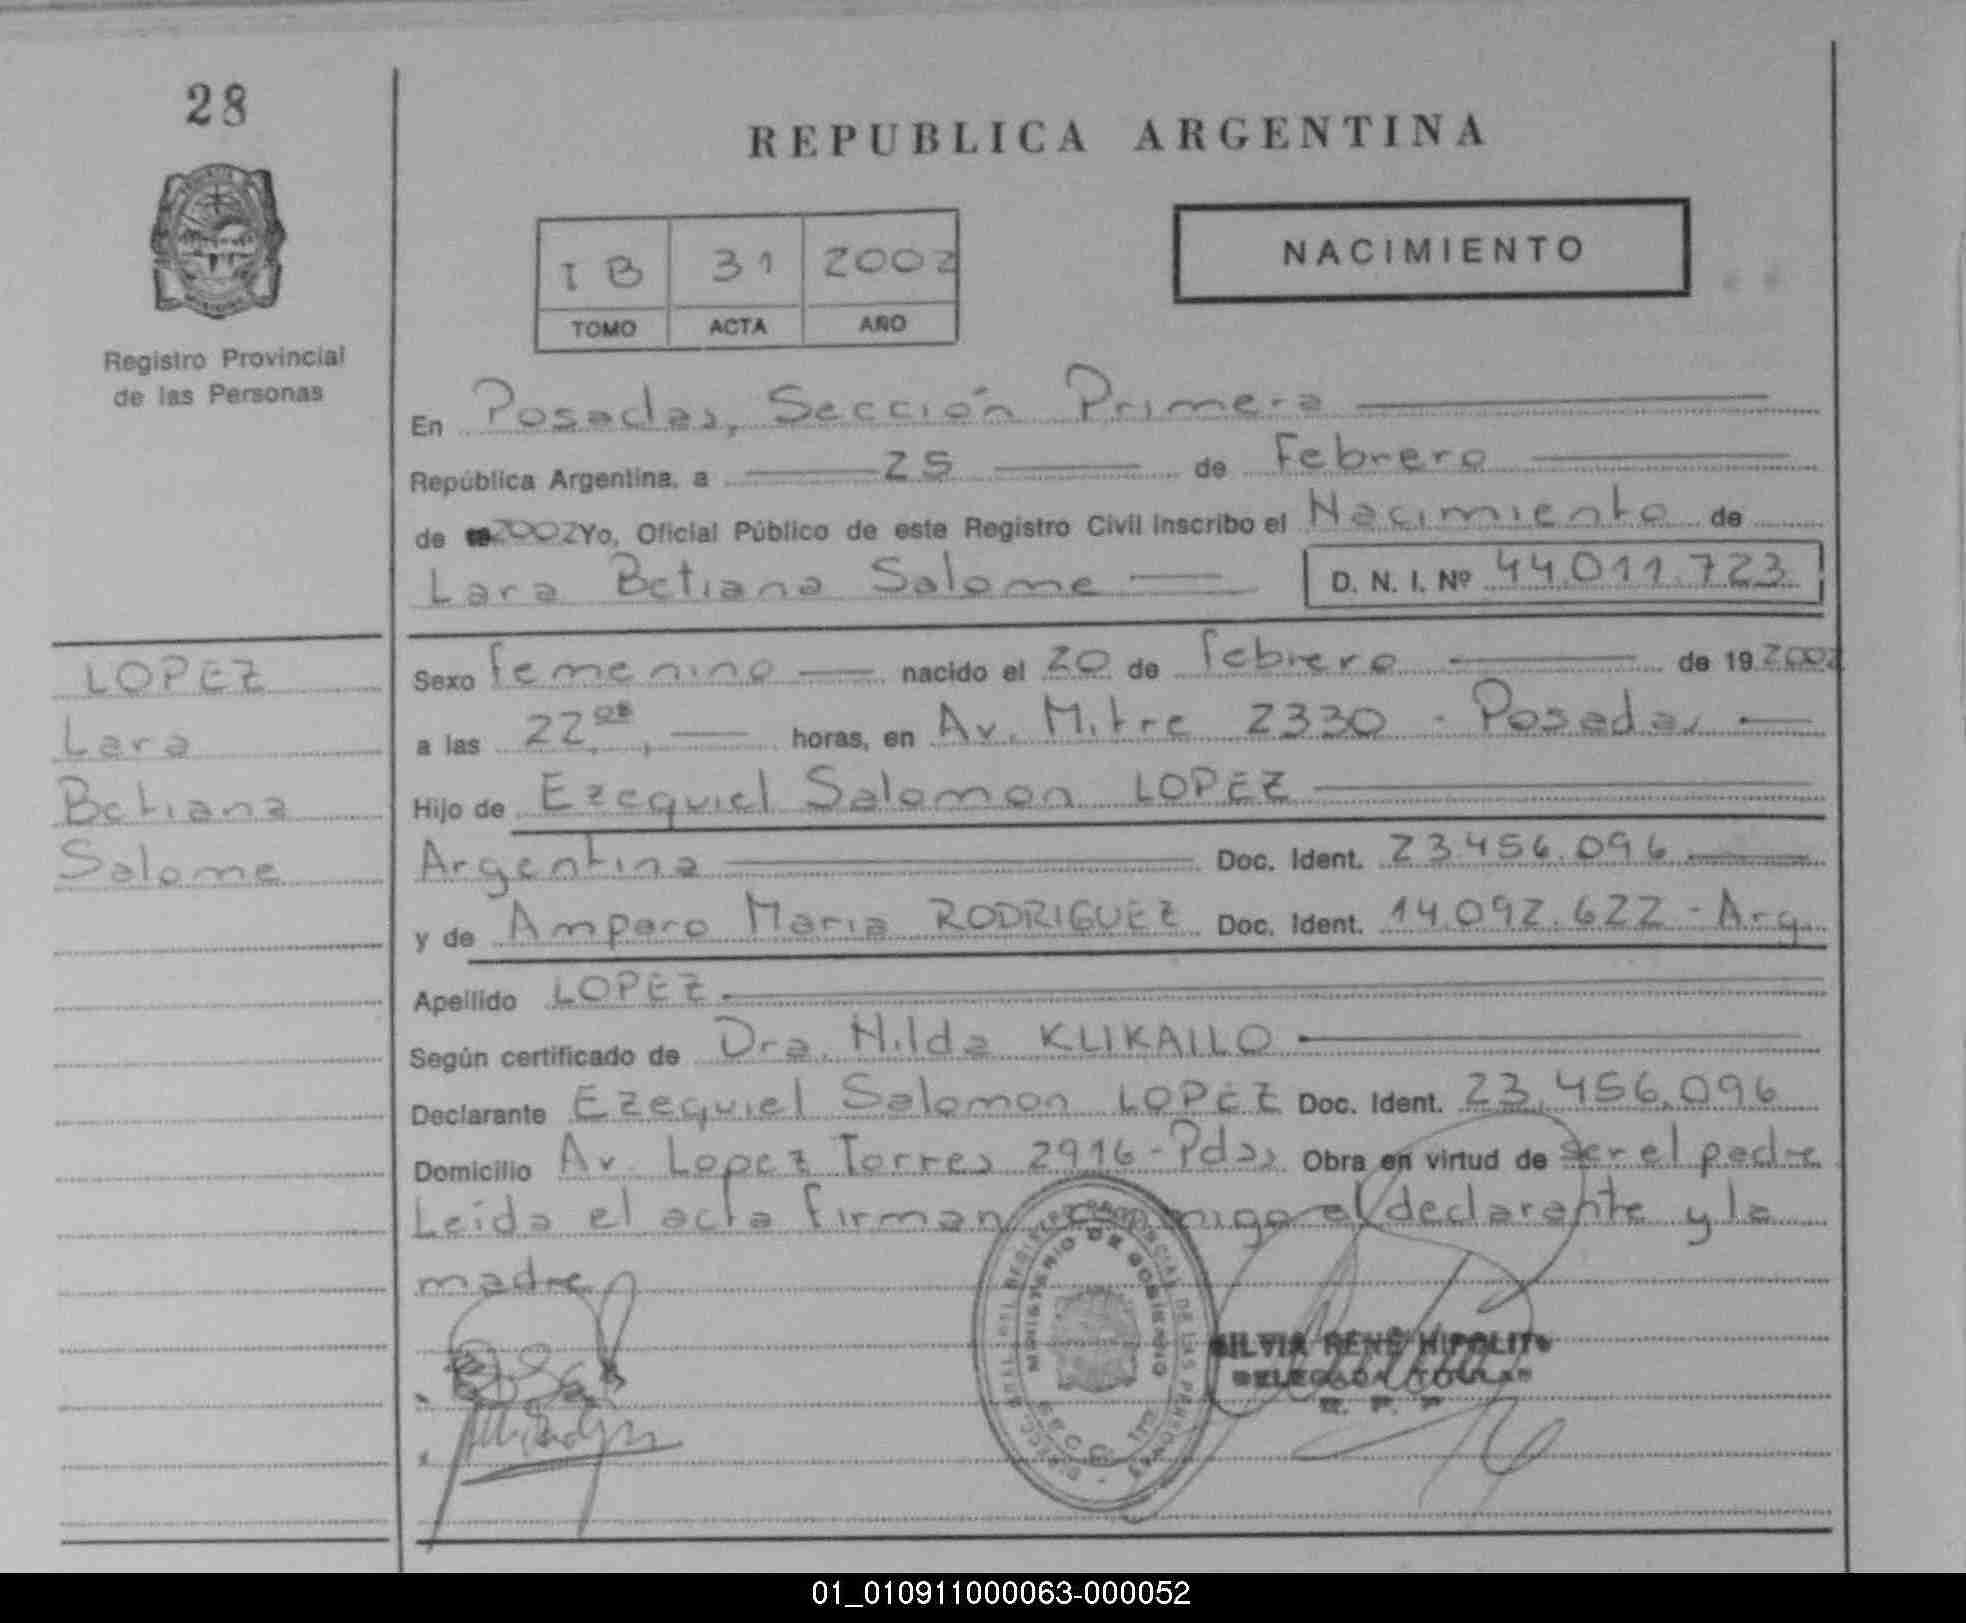 28
REPUBLICA ARGENTINA
NACIMIENTO
I B 31 2002
TOMO ACTA AÑO
Registro Provincial
de las Personas
En Posadas, Sección Primera
República Argentina, a 25 de Febrero
de 2002 Yo, Oficial Público de este Registro Civil inscribo el Nacimiento de
Lara Betiana Salome D. N. I. Nº 44.011.723
LOPEZ
Lara
Betiana
Salome
Sexo femenino nacido el 20 de febrero de 19 2002
a las 22,00, horas, en Av. Mitre 2330 - Posadas
Hijo de Ezequiel Salomon LOPEZ
Argentina Doc. Ident. 23.456.096
y de Amparo Maria RODRIGUEZ Doc. Ident. 14.092.622 - Arg.
Apellido LOPEZ
Según certificado de Dra. Hilda KLIKAILO
Declarante Ezequiel Salomon LOPEZ Doc. Ident. 23.456.096
Domicilio Av. Lopez Torres 2916 - Pdas Obra en virtud de ser el padre
Leida el acta firman conmigo el declarante y la
madre
REGISTRO PROVINCIAL DE LAS PERSONAS
MINISTERIO DE GOBIERNO
SECC. 1ra
SILVIA RENÉ HIPOLITO
R. P. P
01_010911000063-000052